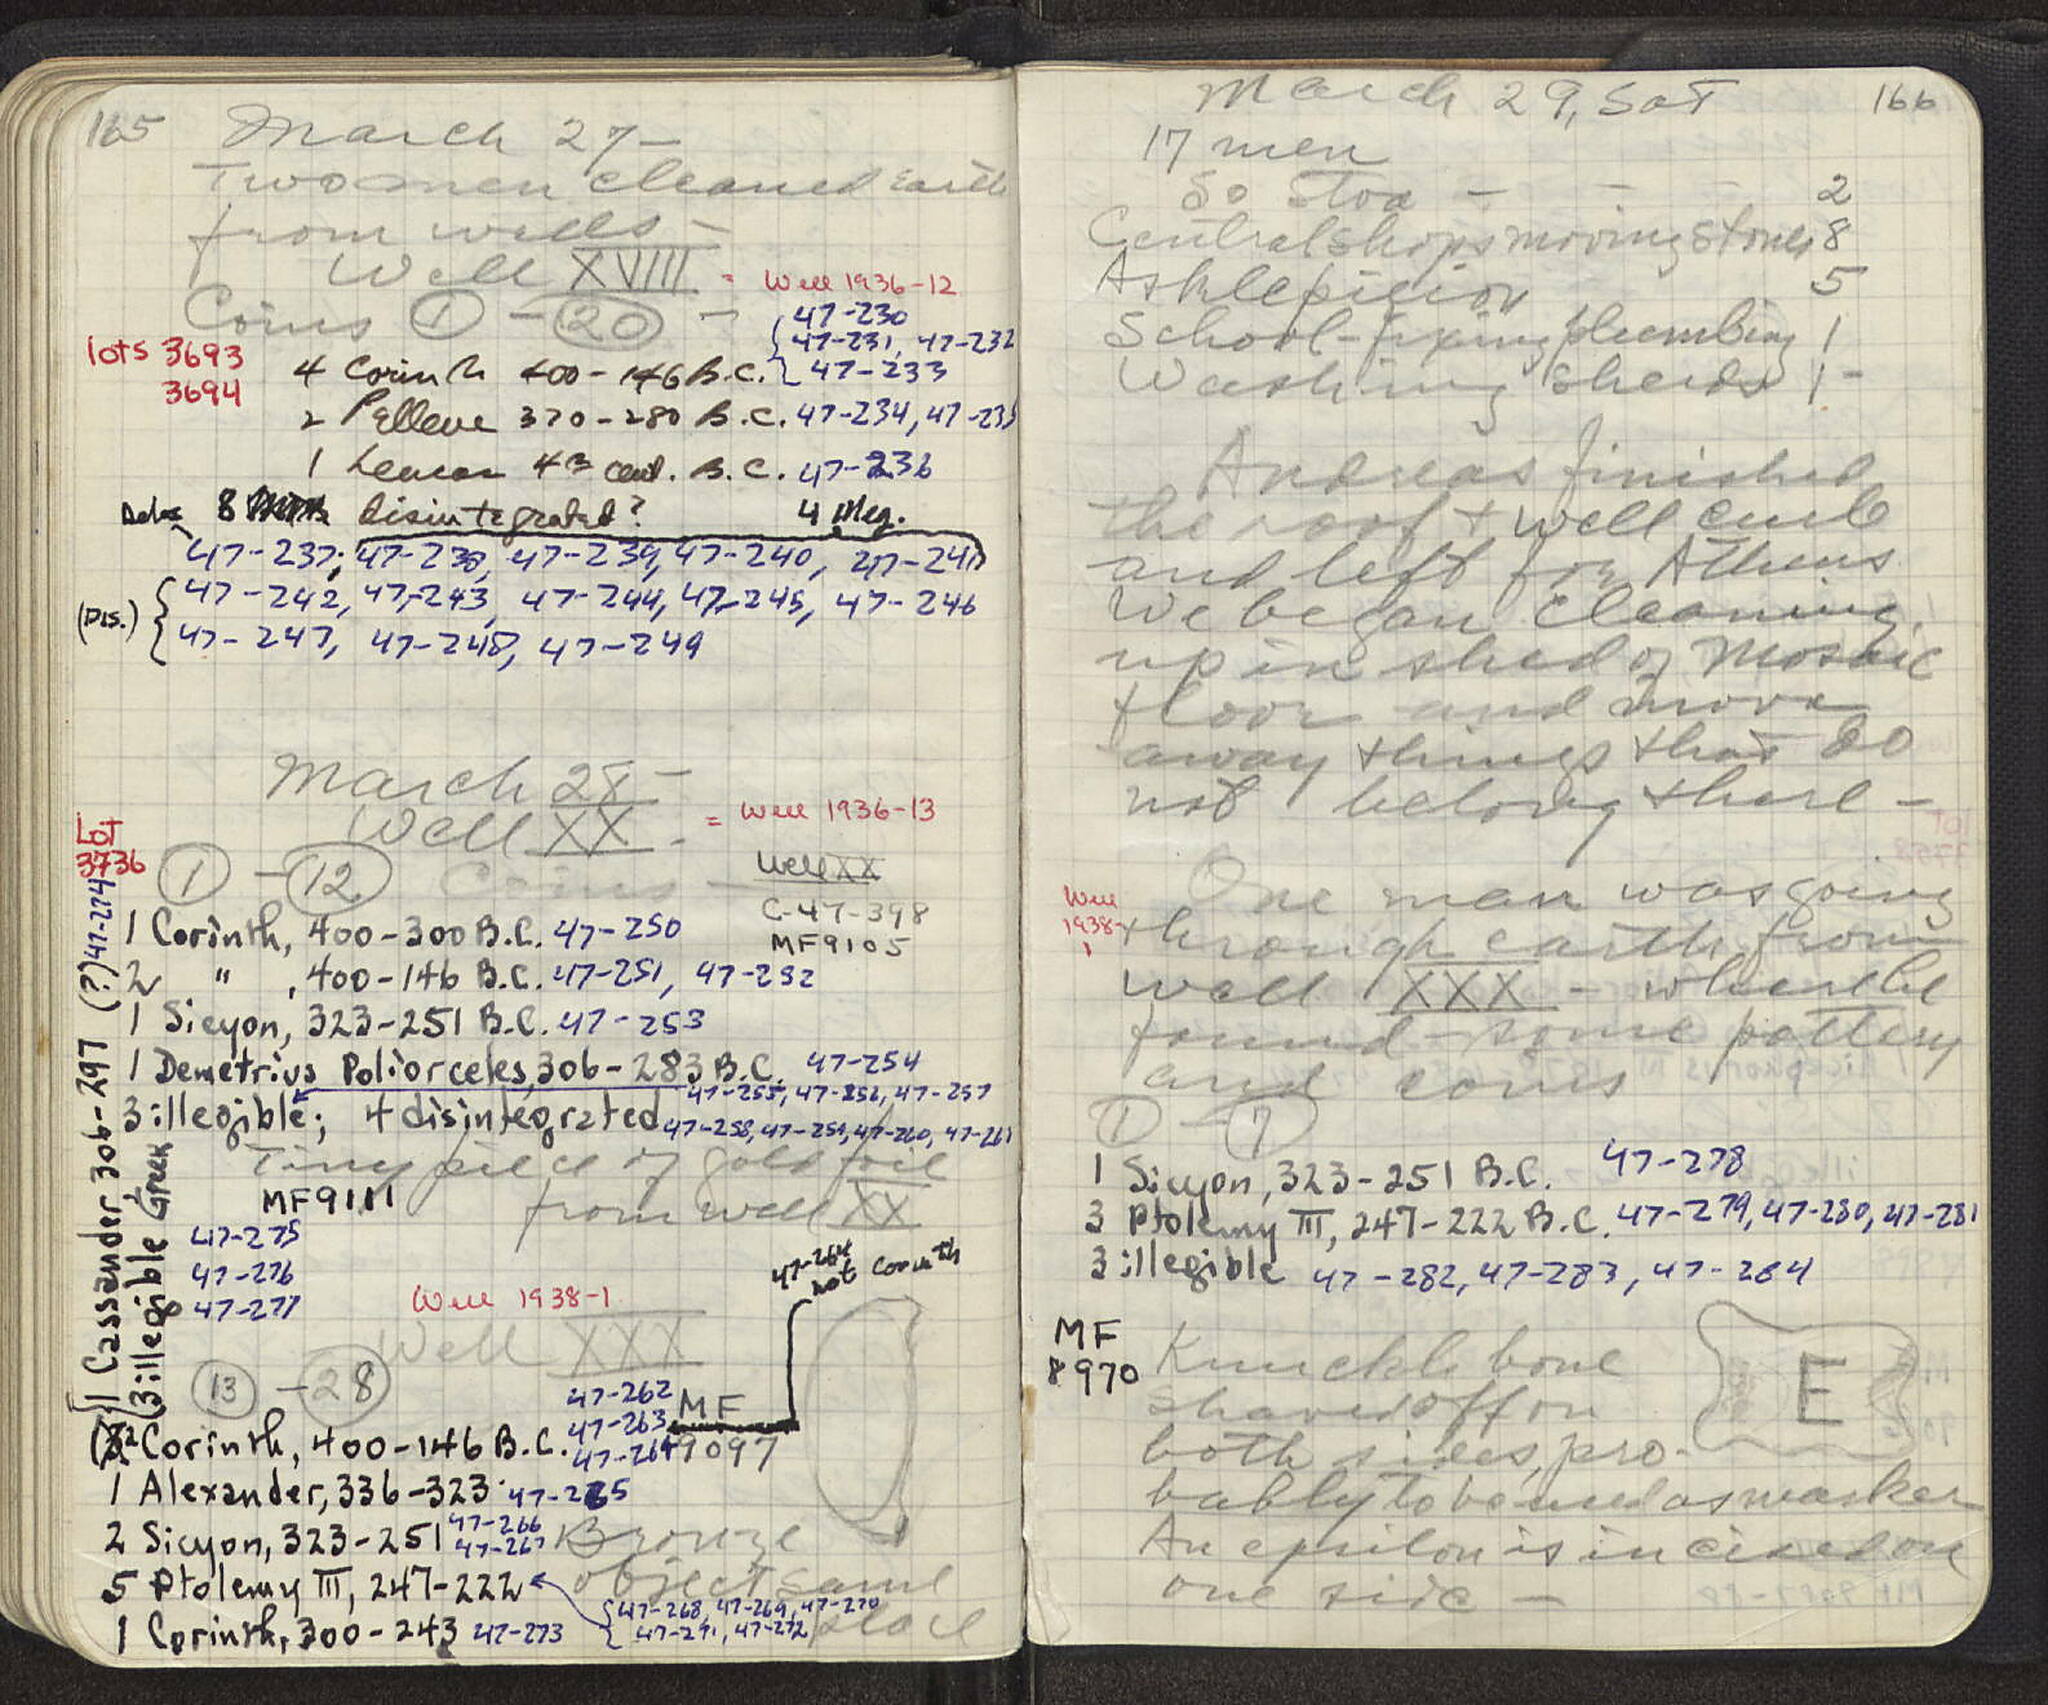 165
March 27-
Two men cleaned earth
from wells -
Well XVIII = Well 1936-12
Coins 1 - 20 - 47-230
47-231, 47-232
lots 3693
3694
4 Corinth 400-146 B.C. 47-233
2 Pellene 370-280 B.C. 47-234, 47-235
1 4th cent. B.C. 47-236
8 disintegrated? 4 illeg.
47-237; 47-238, 47-239, 47-240, 47-241
(Dis.) 47-242, 47-243, 47-244, 47-245, 47-246
47-247, 47-248, 47-249
March 28-
Well XX - = Well 1936-13
Lot
3736
1 - 12 Coins -
Well XX
C-47-398
MF9105
1 Corinth, 400-300 B.C. 47-250
2 " , 400-146 B.C. 47-251, 47-252
1 Sicyon, 323-251 B.C. 47-253
1 Demetrius Poliorcetes, 306-283 B.C. 47-254
47-255, 47-256, 47-257
3 illegible; 4 disintegrated 47-258, 47-259, 47-260, 47-261
Tiny piece of gold foil
from well XX
MF9111
1 Cassander 306-297 (?) 47-274
3 illegible Greek
47-275
47-276
47-277
47-264
not Corinth
Well 1938-1
Well XXX
13 - 28
47-262
47-263
47-264
MF
9097
2 Corinth, 400-146 B.C.
1 Alexander, 336-323 47-265
2 Sicyon, 323-251 47-266
47-267
Bronze
object same
place
5 Ptolemy III, 247-222
47-268, 47-269, 47-270
47-271, 47-272
1 Corinth, 300-243 47-273
March 29, Sat 166
17 men
So Stoa - - - 2
Central shops moving stones 8
Asklepieion 5
School - fixing plumbing 1
Washing sherds 1 -
Andreas finished
the roof + well curb
and left for Athens.
We began cleaning
up in shed of Mosaic
floor and move
away things that do
not belong there -
Well
1938-
1
One man was going
through earth from
well XXX - where he
found some pottery
and coins
1 - 7
1 Sicyon, 323-251 B.C. 47-278
3 Ptolemy III, 247-222 B.C. 47-279, 47-280, 47-281
3 illegible 47-282, 47-283, 47-284
MF
8970
Knuckle bone
shaved off on
both sides, pro-
bably to be used as marker
An epsilon is incised on
one side -
E